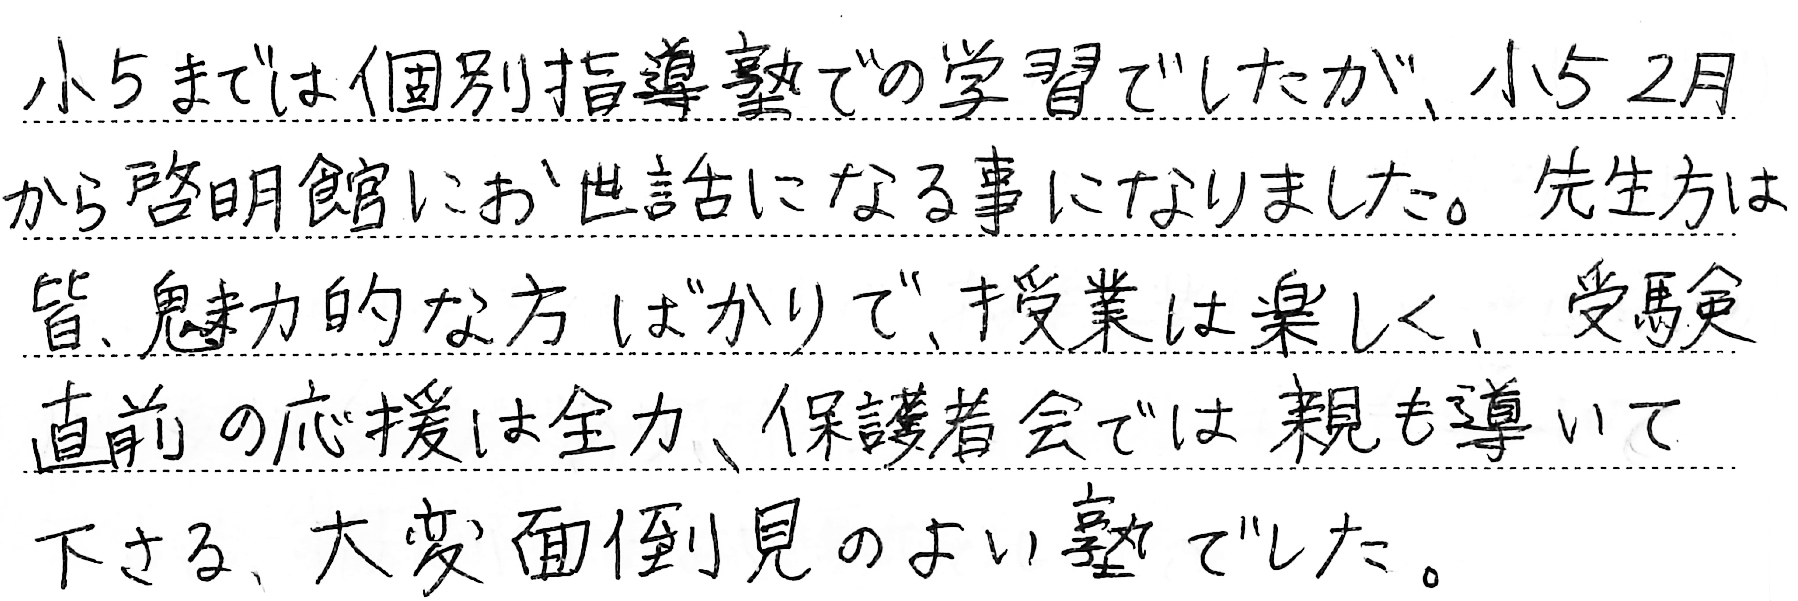 小5までは個別指導塾での学習でしたが、小5 2月
から啓明館にお世話になる事になりました。先生方は
皆、魅力的な方ばかりで、授業は楽しく、受験
直前の応援は全力、保護者会では親も導いて
下さる、大変面倒見のよい塾でした。